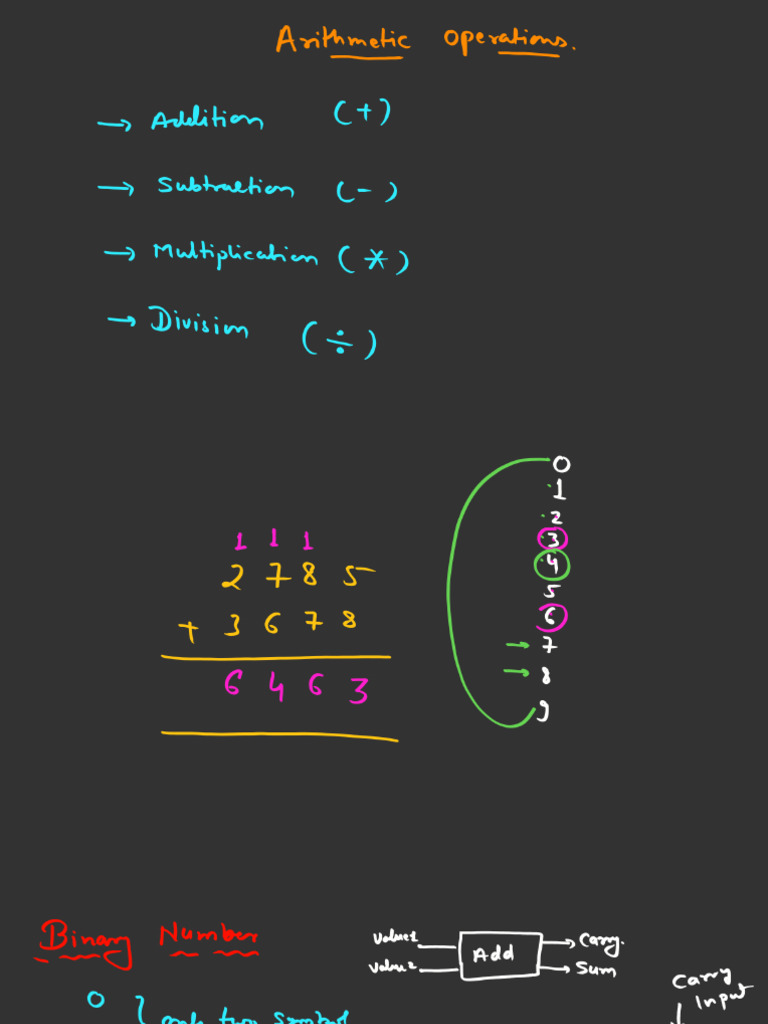 Arithmetic Operations.
→ Addition (+)
→ Subtraction (-)
→ Multiplication (*)
→ Division (÷)
0
1
2
3
4
5
6
7
8
9
1 1 1
2 7 8 5
+ 3 6 7 8
6 4 6 3
Binary Number
Value1
Value2
Add
Carry.
Sum
Carry
Input
0
only two symbol